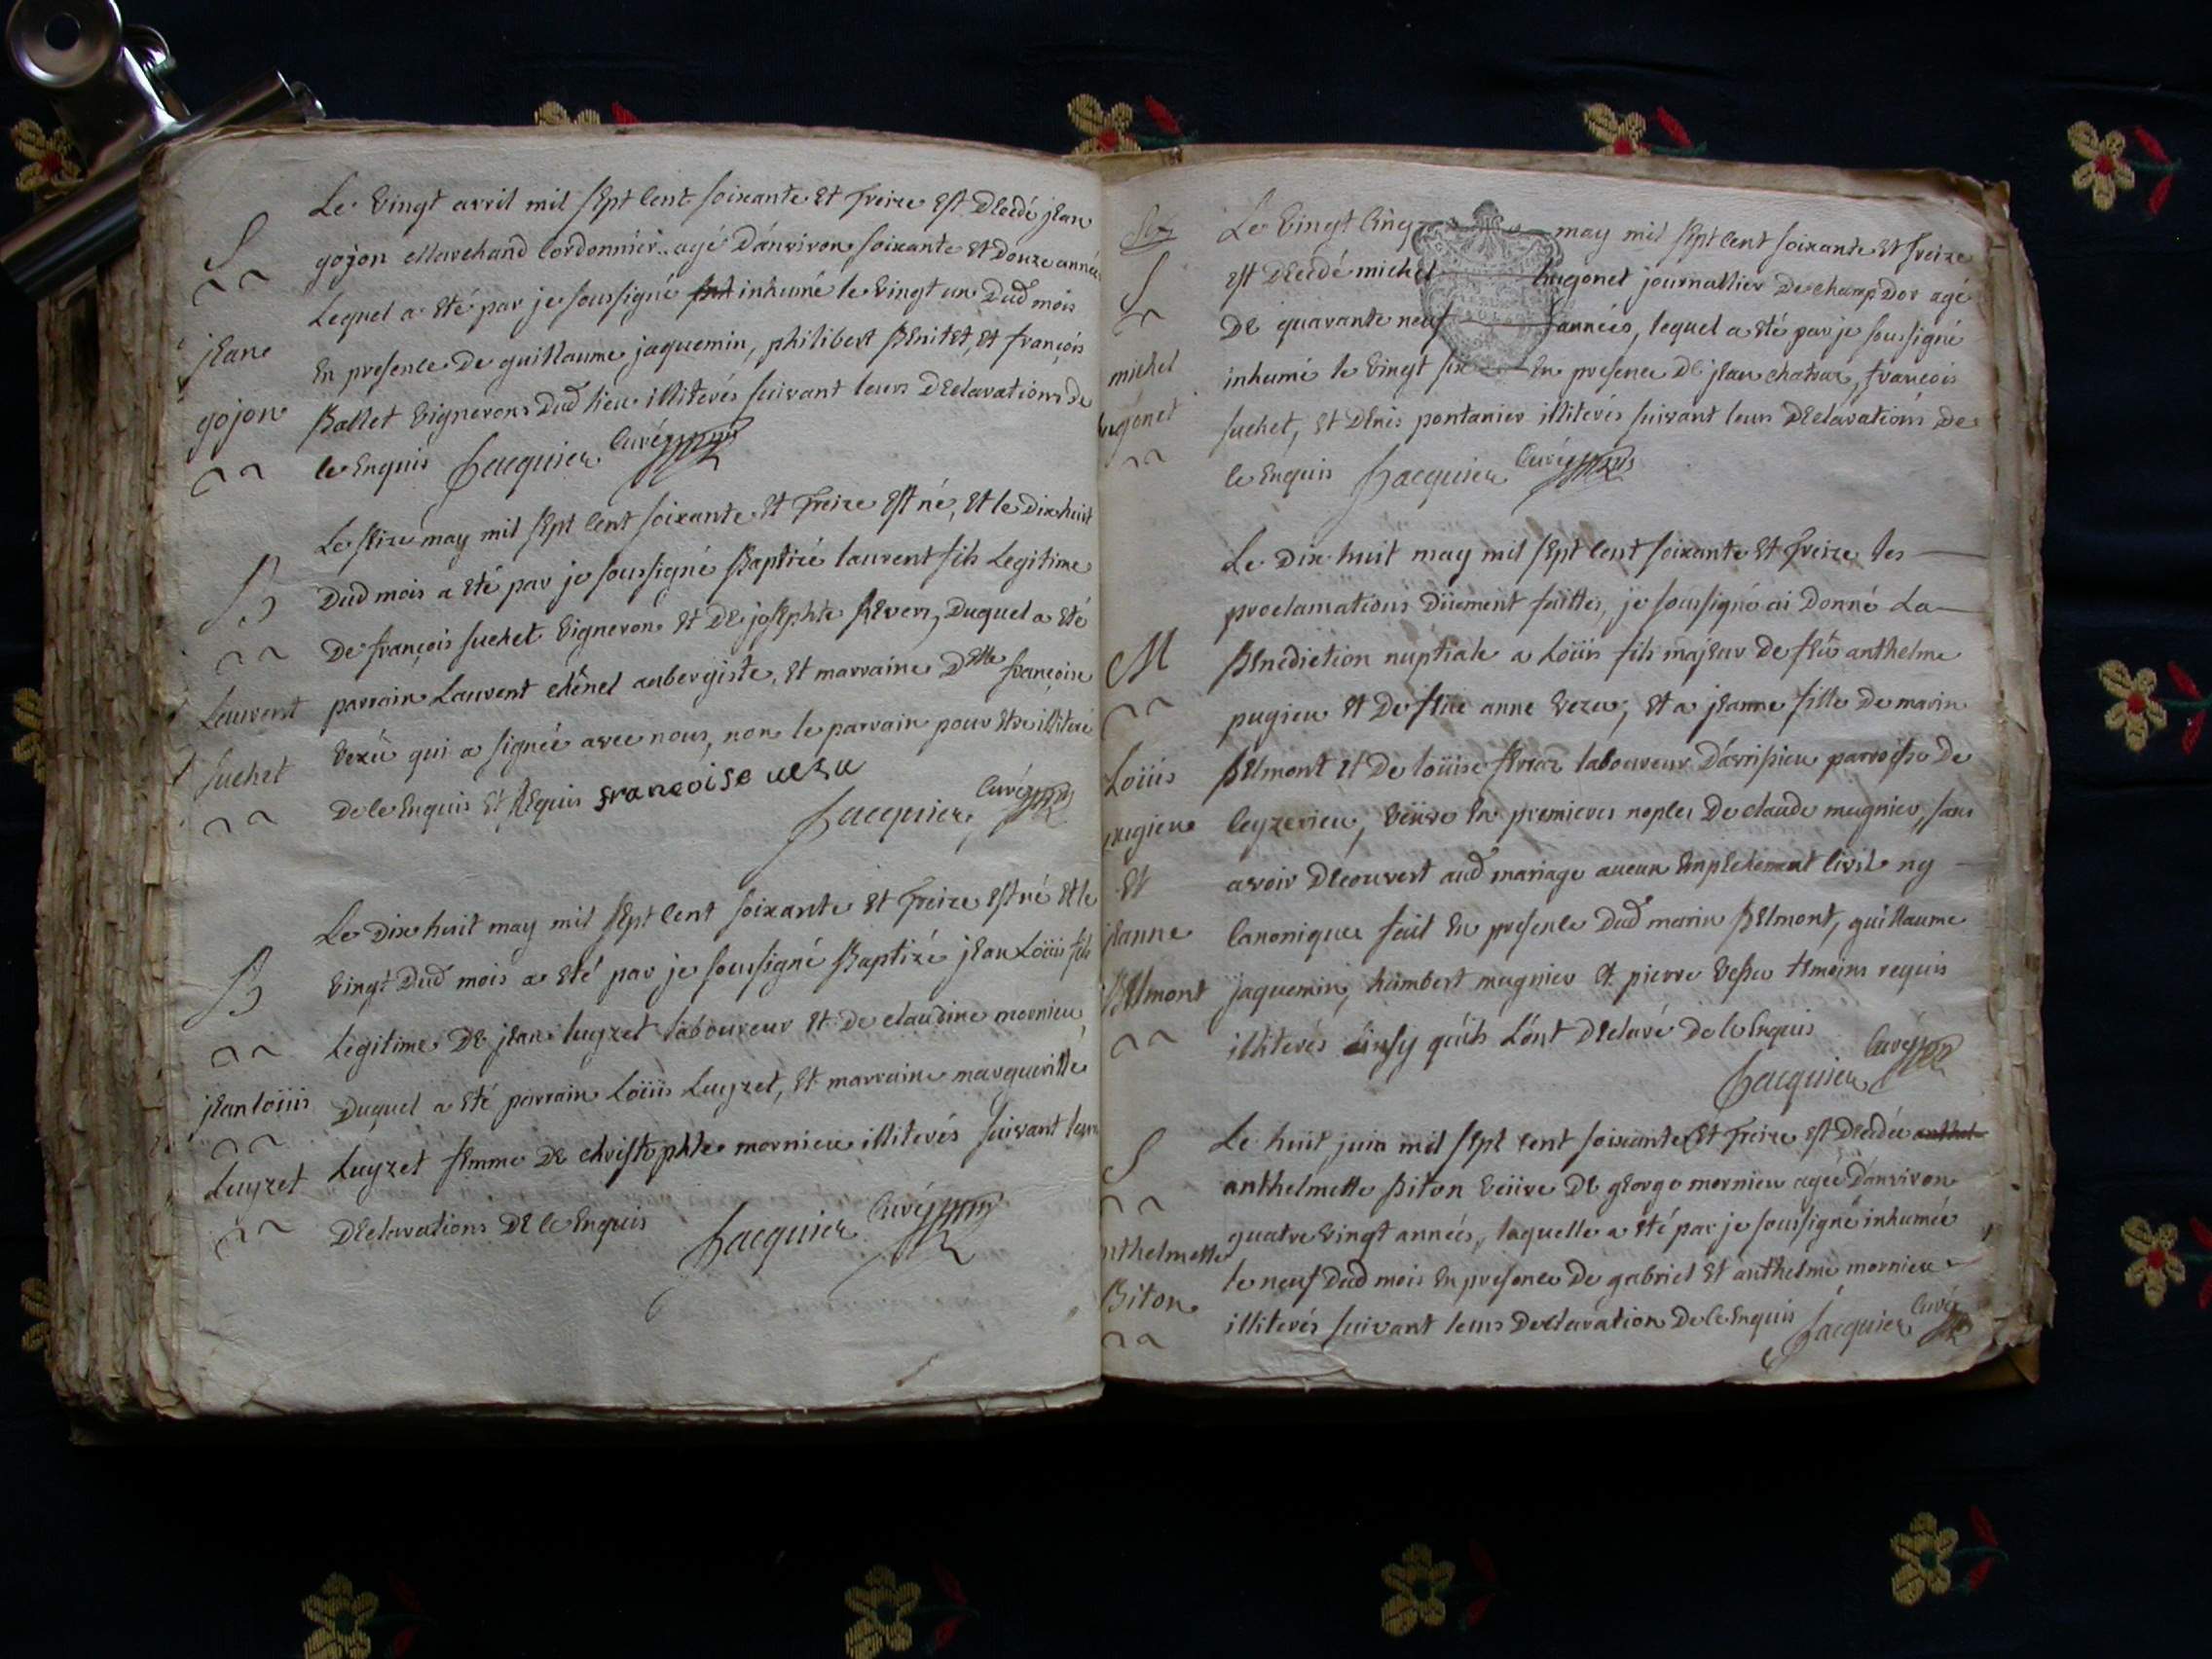 S
jean
gojon
Le vingt avril mil sept cent soixante et treize est decedé jean
gojon Marchand Cordonnier agé d'anviron soixante et douze années
Lequel a eté par je soussigné inhumé le vingt un dud mois
En presence de guillaume jaquemin, philibert Benitet, et françois
Ballet vignerons dud lieu illiterés suivant leurs declarations de
ce Enquis Jacquier Curé
B
Laurent
suchet
Le seize may mil sept cent soixante et treize est né, et le dix huit
dud mois a eté par je soussigné Baptizé laurent fils Legitime
De françois suchet vigneron et de josephte Revers, duquel a eté
parrain Laurent chênel aubergiste, et marraine Delle françoise
vezu qui a signée avec nous, non le parrain pour etre illiteré
de ce Enquis et Requis francoise uezu
Jacquier Curé
B
jean loüis
Luyzet
Le dix huit may mil sept cent soixante et treize est né et le
vingt dud mois a eté par je soussigné Baptizé jean Loüis fils
Legitime de jean luyzet laboureur et de claudine mornieu,
duquel a eté parrain Loüis Luyzet, et marraine margueritte
Luyzet femme de christophle mornieu illiterés suivant leurs
declarations de ce Enquis Jacquier Curé
S
michel
hugonet
Le vingt cinq may mil sept cent soixante et treize
est decedé michel hugonet journallier de champdor agé
de quarante neuf années, lequel a eté par je soussigné
inhumé le vingt six En presence de jean chatvar, françois
suchet, et denis pontanier illiterés suivant leurs declarations de
ce Enquis Jacquier Curé
M
Loüis
pugieu
et
jeanne
Belmont
Le dix huit may mil sept cent soixante et treize les
proclamations düement faittes, je soussigné ai donné La
Benediction nuptiale a Loüis fils majeur de feû anthelme
pugieu et de feüe anne vezu, et a jeanne fille de marin
Belmont et de loüise laboureur d'arrisieu parroisse de
Ceyzerieu, veüve En premieres nopces de claude mugnier, sans
avoir decouvert aud mariage aucun Empechement civil ny
Canonique fait En presence dud marin Belmont, guillaume
Jaquemin, humbert mugnier et pierre temoins requis
illiterés ainsy qu'ils L'ont declaré de ce Enquis
Jacquier Curé
S
anthelmette
Biton
Le huit juin mil sept cent soixante et treize est decedée anthel
anthelmette Biton veüve de george mornieu agée d'anviron
quatre vingt années, laquelle a eté par je soussigné inhumée
le neuf dud mois En presence de gabriel et anthelme mornieu
illiterés suivant leurs declaration de ce Enquis Jacquier Curé